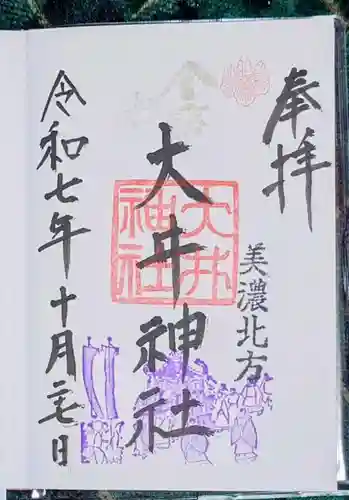 奉拝
美濃北方
大井神社
大井
神社
令和七年十月二七日